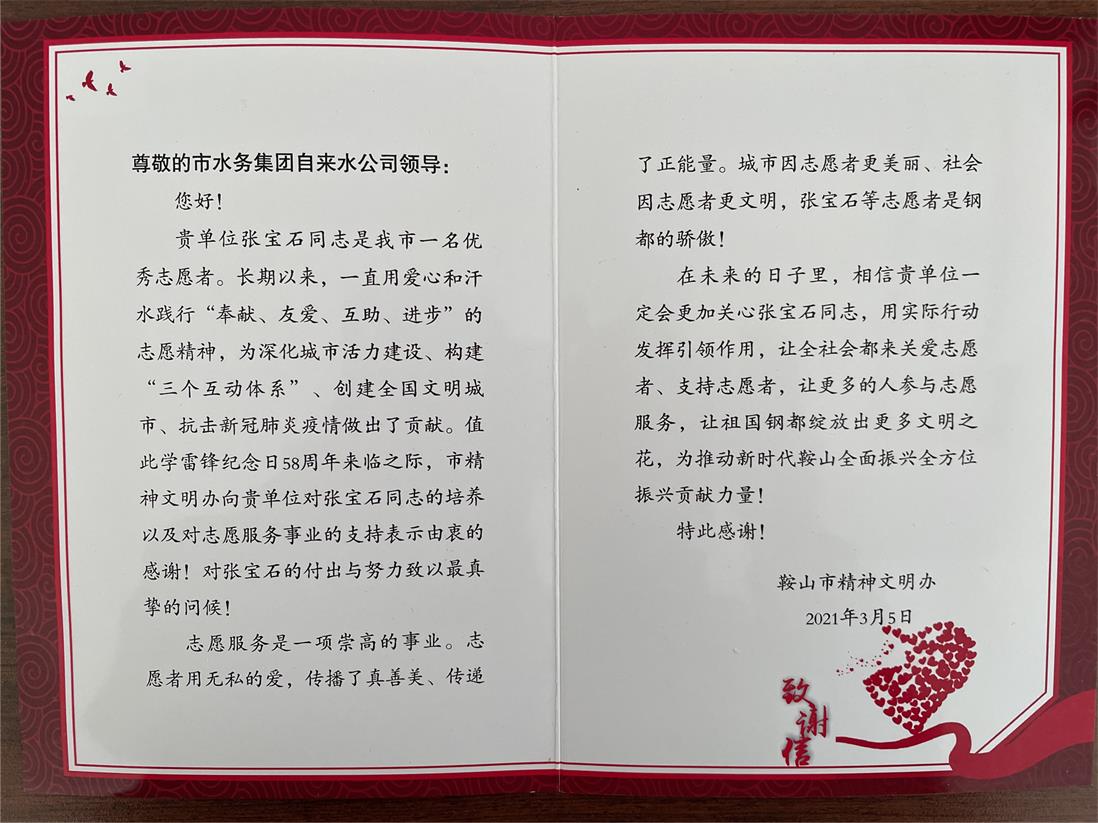 尊敬的市水务集团自来水公司领导：
您好！
贵单位张宝石同志是我市一名优
秀志愿者。长期以来，一直用爱心和汗
水践行“奉献、友爱、互助、进步”的
志愿精神，为深化城市活力建设、构建
“三个互动体系”、创建全国文明城
市、抗击新冠肺炎疫情做出了贡献。值
此学雷锋纪念日58周年来临之际，市精
神文明办向贵单位对张宝石同志的培养
以及对志愿服务事业的支持表示由衷的
感谢！对张宝石的付出与努力致以最真
挚的问候！
志愿服务是一项崇高的事业。志
愿者用无私的爱，传播了真善美、传递
了正能量。城市因志愿者更美丽、社会
因志愿者更文明，张宝石等志愿者是钢
都的骄傲！
在未来的日子里，相信贵单位一
定会更加关心张宝石同志，用实际行动
发挥引领作用，让全社会都来关爱志愿
者、支持志愿者，让更多的人参与志愿
服务，让祖国钢都绽放出更多文明之
花，为推动新时代鞍山全面振兴全方位
振兴贡献力量！
特此感谢！
鞍山市精神文明办
2021年3月5日
致谢信